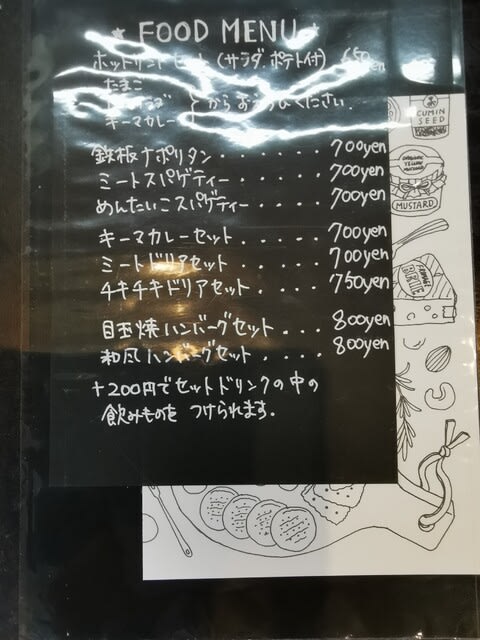 ★ FOOD MENU ★
ホットサンドセット (サラダ、ポテト付) 650yen
たまご
キーマカレー } からおえらびください.
鉄板ナポリタン ....... 700yen
ミートスパゲティー ...... 700yen
めんたいこスパゲティー .... 700yen
キーマカレーセット ..... 700yen
ミートドリアセット ..... 700yen
チキチキドリアセット .... 750yen
目玉焼ハンバーグセット .... 800yen
和風ハンバーグセット .... 800yen
+200円でセットドリンクの中の
飲みものを つけられます.
CUMIN SEED
MUSTARD